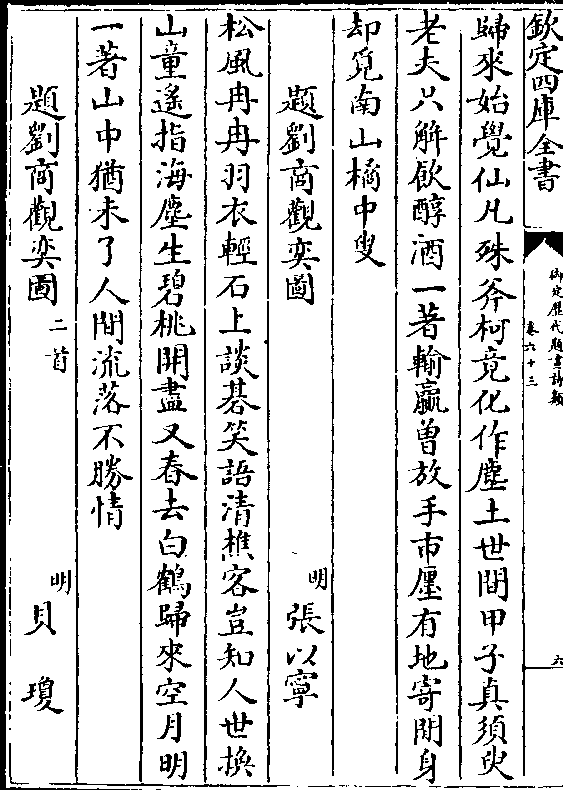 欽定四庫全書
御定歷代題畫詩類
卷六十三
六
歸來始覺仙凡殊斧柯竟化作塵土世間甲子真須臾
老夫只解飲醇酒一著輸贏曾放手市廛有地寄閒身
却覓南山橘中叟
題劉商觀奕圖
明
張以寧
松風冉冉羽衣輕石上談棊笑語清樵客豈知人世換
山童遙指海塵生碧桃開盡又春去白鶴歸來空月明
一著山中猶未了人間流落不勝情
題劉商觀奕圖
二首
明
貝瓊